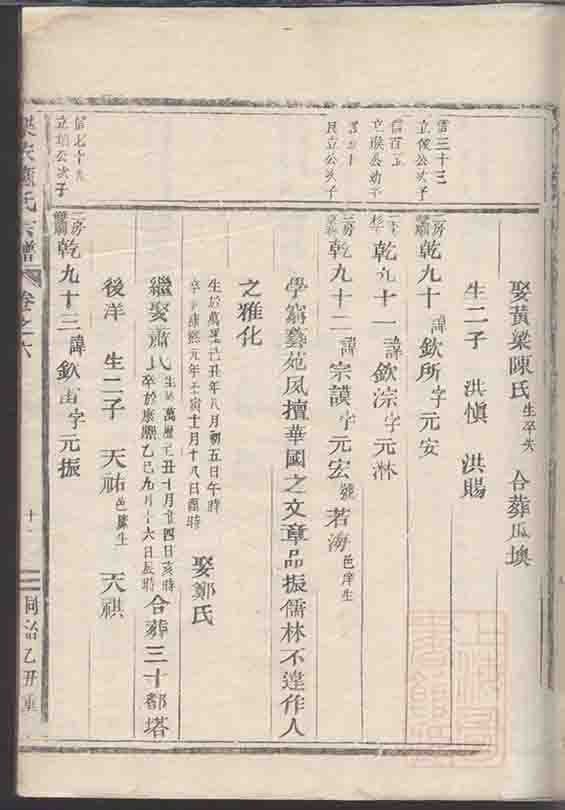 娶黃梁陳氏 生卒失 合葬瓜墺
生二子 洪愼 洪賜
雷三十三
立俊公次子
二房 乾九十 諱欽所字元安
信百五
立猴公幼子
乾九十一 諱欽淙字元淋
民立公次子
三房 乾九十二 諱宗謨字元宏號若海 邑庠生
學窮藝苑風擅華國之文章品振儒林不遑作人
之雅化
生於萬歷己丑年八月初五日午時
卒于康熙元年壬寅十月十八日酉時
娶鄭氏
繼娶蕭氏 生於萬歷 丑十月廿四日亥時
卒於康熙乙巳九月十六日辰時
合葬三十都塔
後洋 生二子 天祐 邑廩生 天祺
信七十九
立 公次子
二房 乾九十三 諱欽宙字元振
氏宗譜 卷之六
十一
同治乙丑重